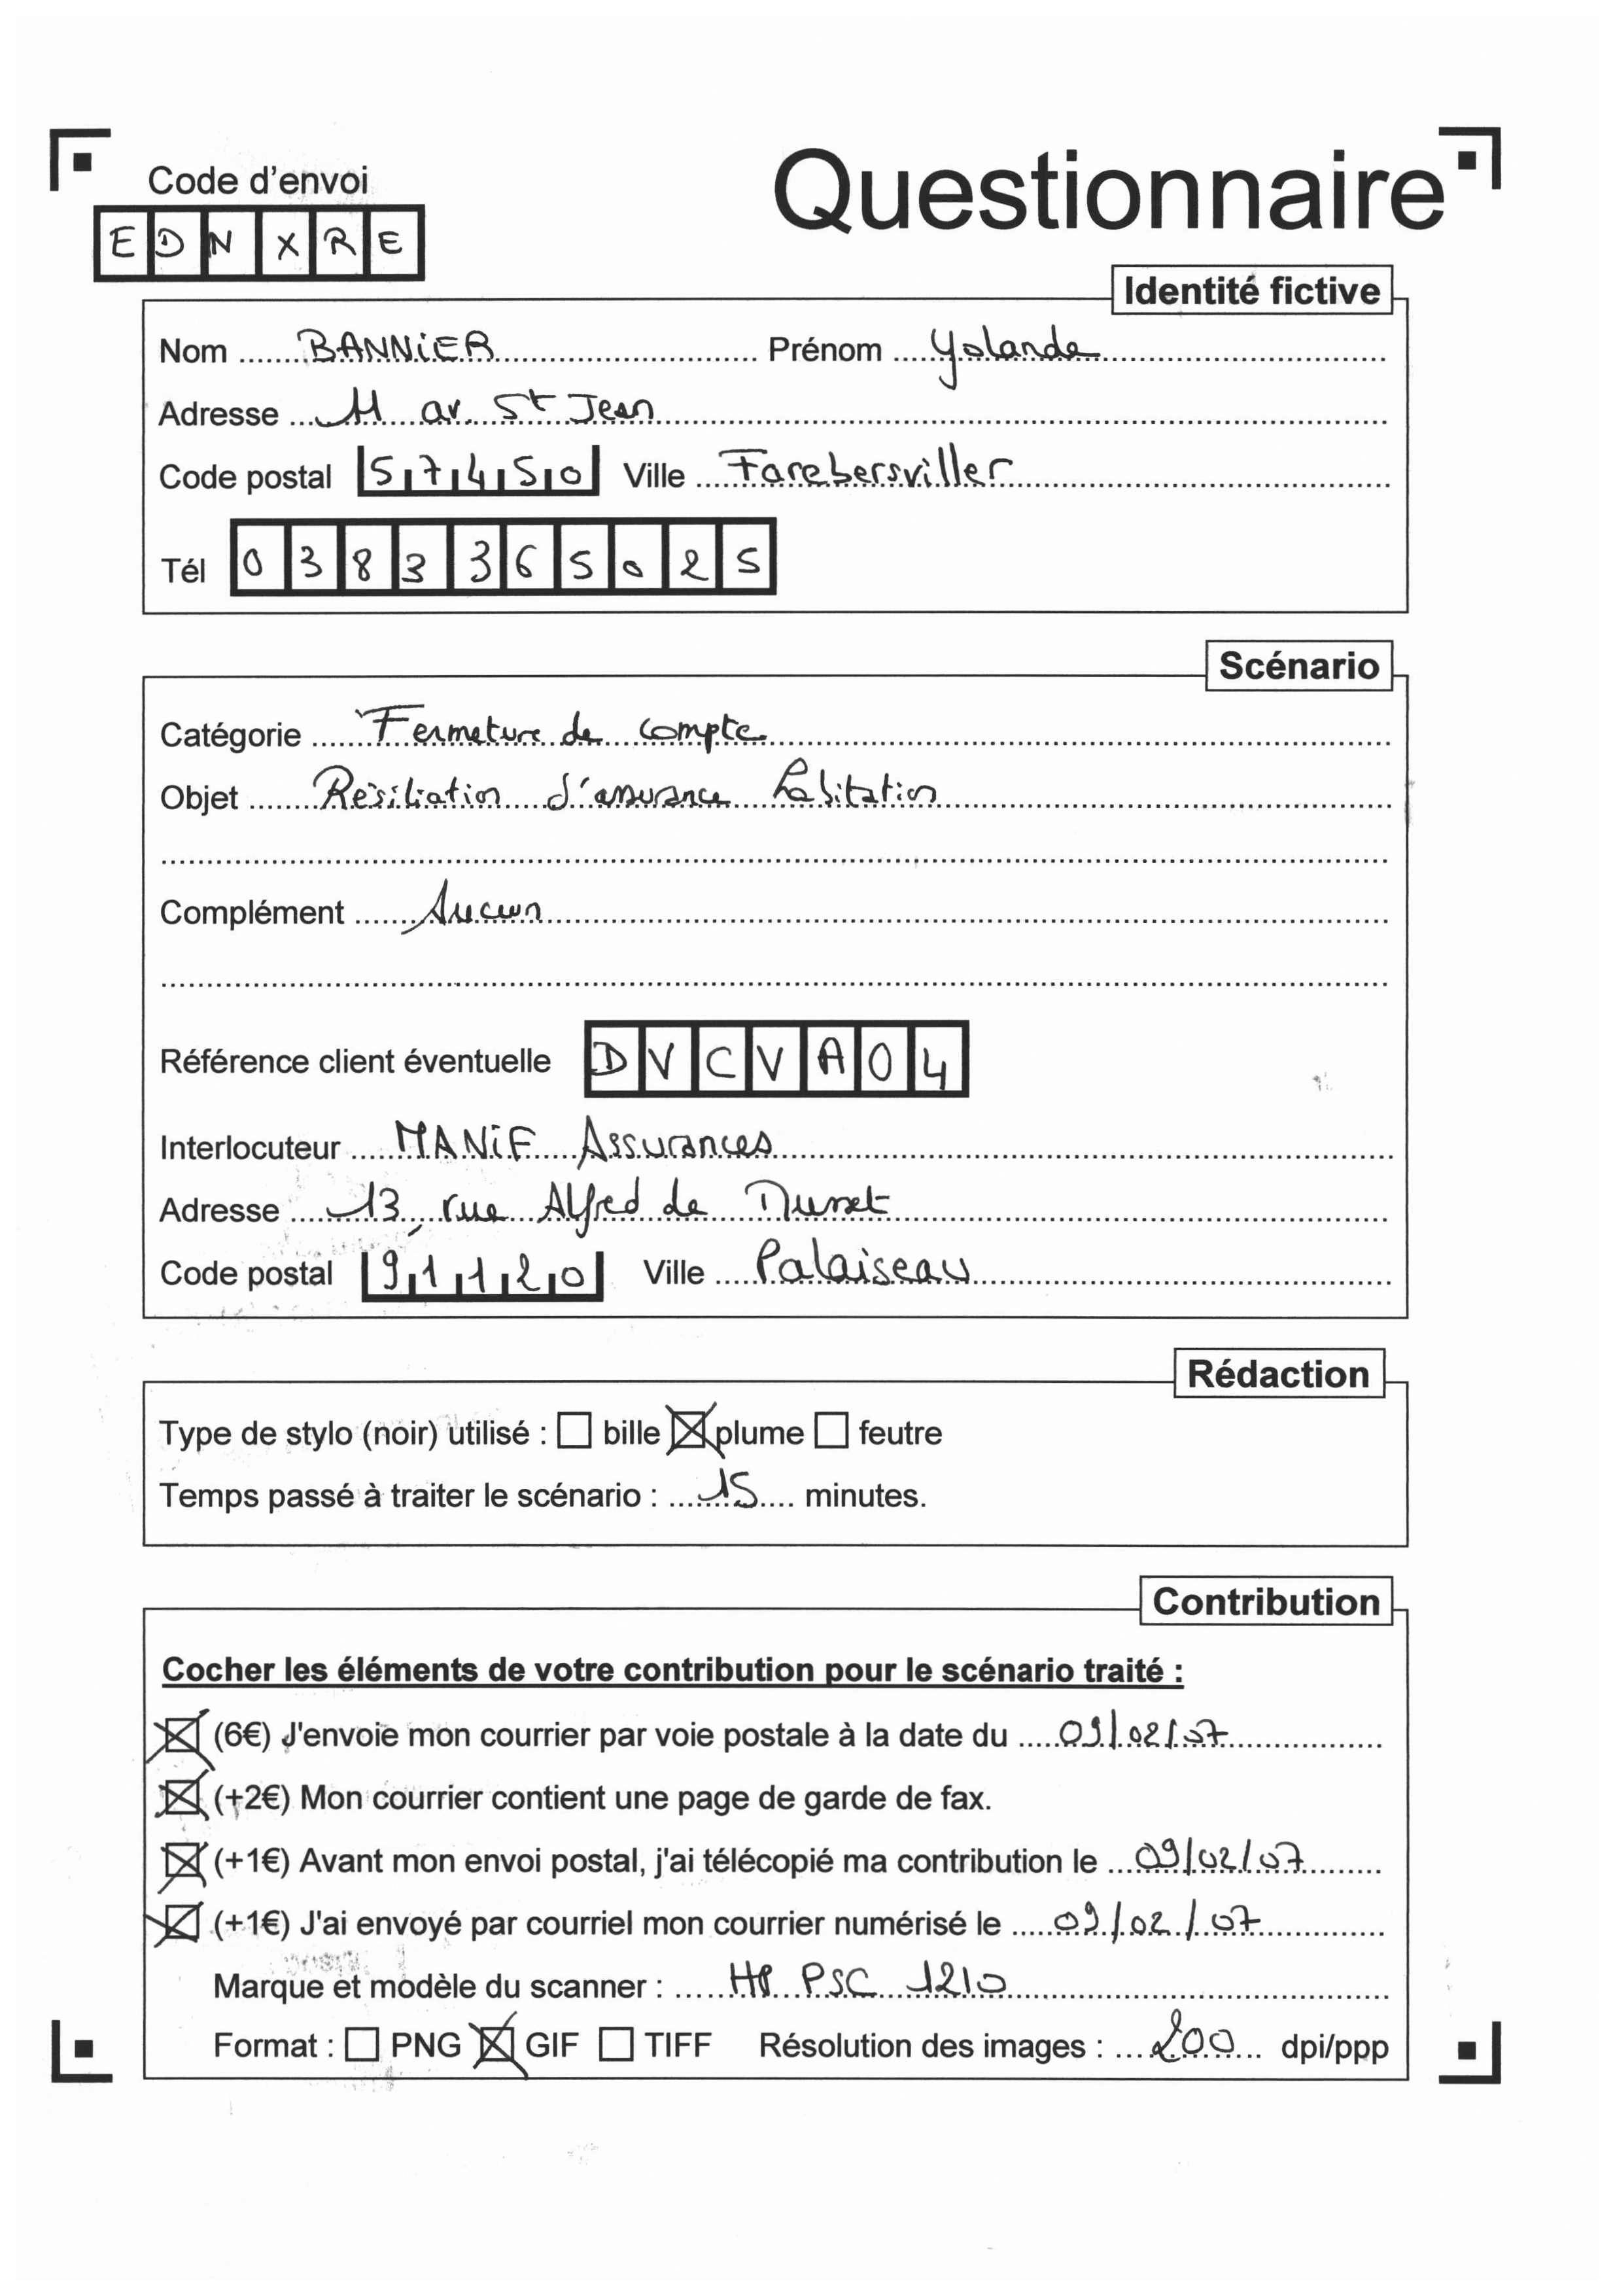 Code d'envoi
Questionnaire
EDNXRE
Identité fictive
Nom BANNiER Prénom Yolande
Adresse 11 av. St Jean
Code postal 57450 Ville Farebersviller
Tél 0383365025
Scénario
Catégorie Fermeture de compte
Objet Résiliation d'assurance habitation
Complément Aucun
Référence client éventuelle DVCVA04
Interlocuteur MANiF Assurances
Adresse 13, rue Alfred de Musset
Code postal 91120 Ville Palaiseau
Rédaction
Type de stylo (noir) utilisé : bille plume feutre
Temps passé à traiter le scénario : 15 minutes.
Contribution
Cocher les éléments de votre contribution pour le scénario traité :
(6€) J'envoie mon courrier par voie postale à la date du 09/02/07
(+2€) Mon courrier contient une page de garde de fax.
(+1€) Avant mon envoi postal, j'ai télécopié ma contribution le 09/02/07
(+1€) J'ai envoyé par courriel mon courrier numérisé le 09/02/07
Marque et modèle du scanner : HP PSC 1210
Format : PNG GIF TIFF Résolution des images : 200 dpi/ppp